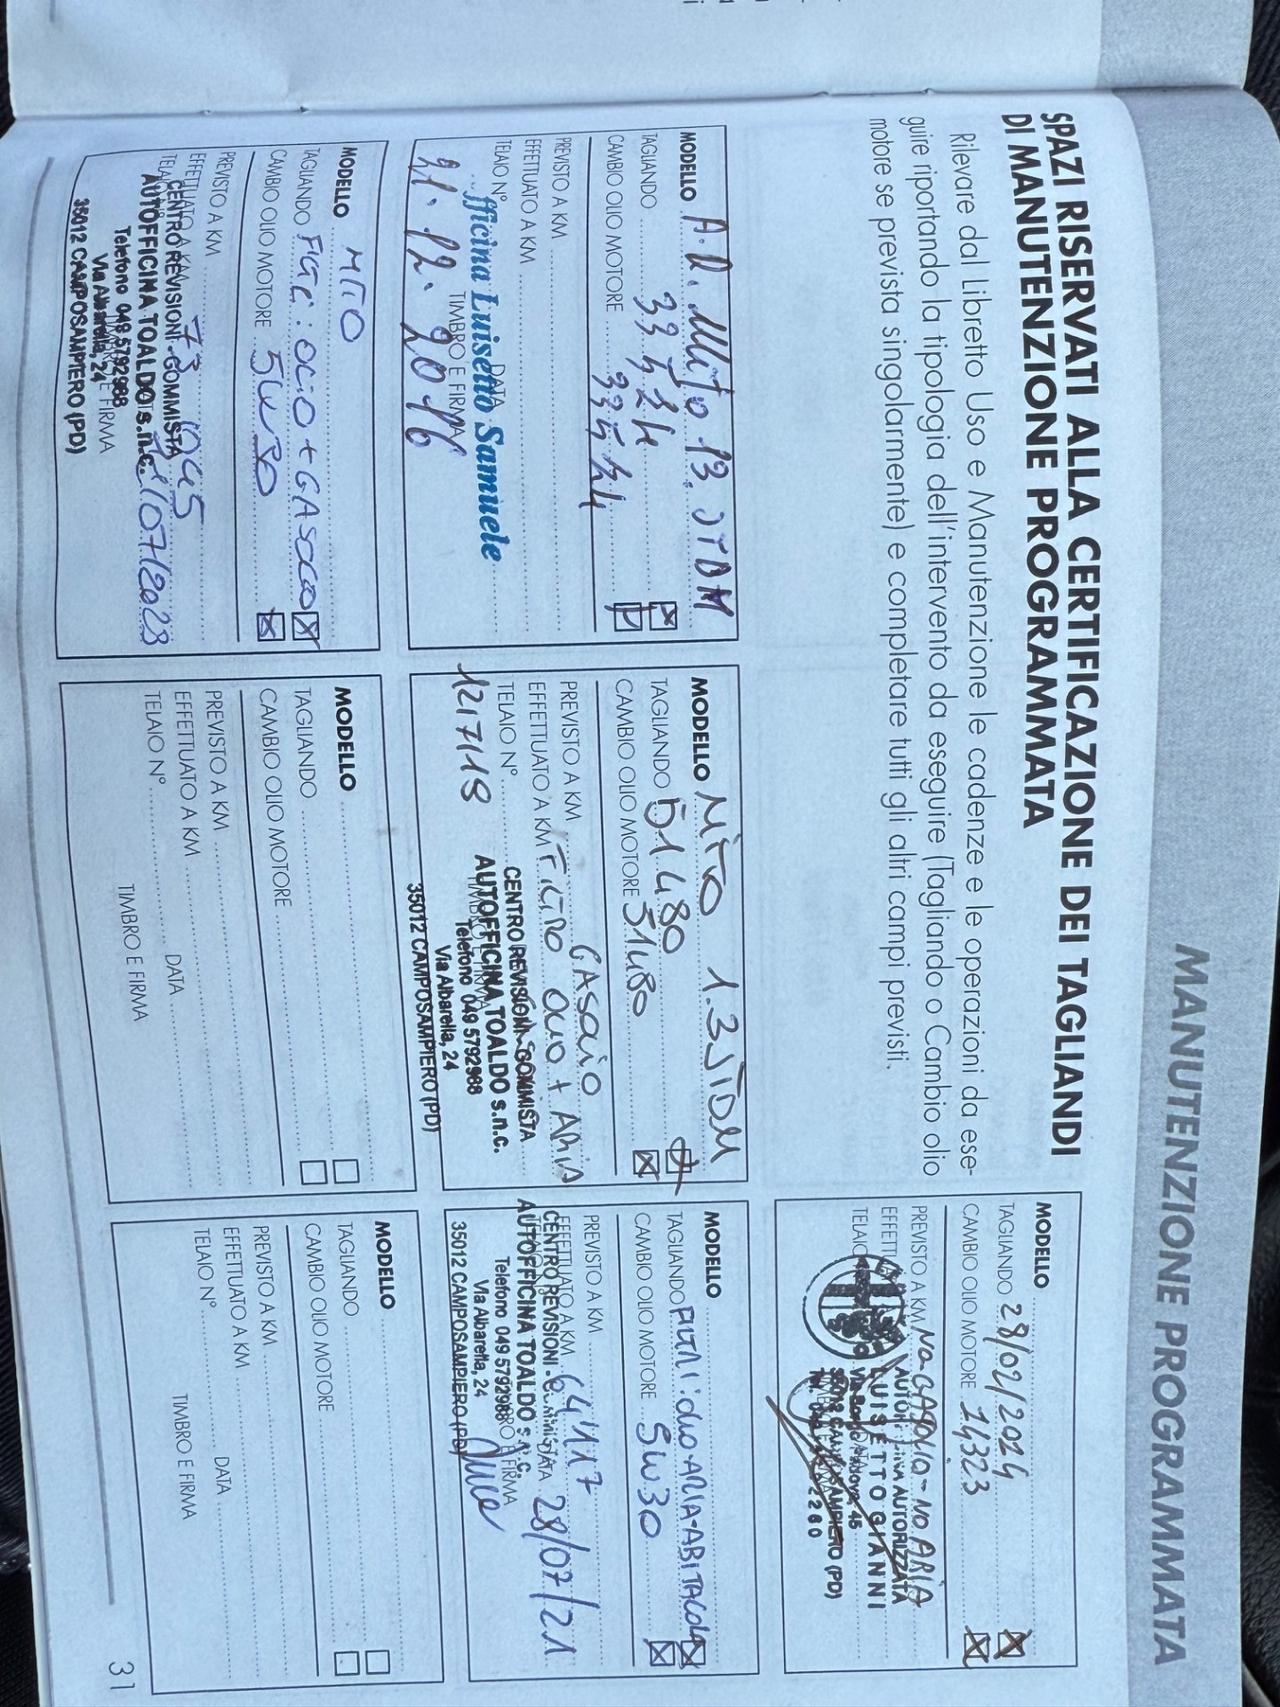 MANUTENZIONE PROGRAMMATA
SPAZI RISERVATI ALLA CERTIFICAZIONE DEI TAGLIANDI
DI MANUTENZIONE PROGRAMMATA
Rilevare dal Libretto Uso e Manutenzione le cadenze e le operazioni da ese-
guire riportando la tipologia dell'intervento da eseguire (Tagliando o Cambio olio
motore se prevista singolarmente) e completare tutti gli altri campi previsti.
MODELLO
TAGLIANDO 28/02/2024
CAMBIO OLIO MOTORE 14323
PREVISTO A KM NO GASOLIO - NO ARIA
EFFETT
TELAIO
AUTORIZZATA
LUISETTO GIANNI
45
35012 CAMPOSAMPIERO (PD)
MODELLO A.R. Mito 13. JTDM
TAGLIANDO 33524
CAMBIO OLIO MOTORE 33524
PREVISTO A KM
EFFETTUATO A KM
TELAIO N° DATA
fficina Luisetto Samuele
TIMBRO E FIRMA
21.12.2016
MODELLO MITO 1.3 JTDM
TAGLIANDO 51480
CAMBIO OLIO MOTORE 51480
PREVISTO A KM GASOLIO
EFFETTUATO A KM FILTRO OLIO + ARIA
TELAIO N°
CENTRO REVISIONI-GOMMISTA
AUTOFFICINA TOALDO s.n.c.
Telefono 049 5792988
Via Albarella, 24
35012 CAMPOSAMPIERO (PD)
12/7/19
MODELLO
TAGLIANDO FILTRI: OLIO-ARIA-ABITACOLO
CAMBIO OLIO MOTORE 5W30
PREVISTO A KM
EFFETTUATO A KM 64117
DATA 28/07/21
CENTRO REVISIONI
AUTOFFICINA TOALDO s.n.c.
Telefono 049 5792988
FIRMA
Via Albarella, 24
35012 CAMPOSAMPIERO (PD)
MODELLO MITO
TAGLIANDO FILTRI: OLIO + GASOLIO
CAMBIO OLIO MOTORE 5W30
PREVISTO A KM
EFFETTUATO A KM
CENTRO REVISIONI-GOMMISTA
AUTOFFICINA TOALDO s.n.c.
/07/2023
Telefono 049 5792988
E FIRMA
Via Albarella, 24
35012 CAMPOSAMPIERO (PD)
MODELLO
TAGLIANDO
CAMBIO OLIO MOTORE
PREVISTO A KM
EFFETTUATO A KM
TELAIO N° DATA
TIMBRO E FIRMA
MODELLO
TAGLIANDO
CAMBIO OLIO MOTORE
PREVISTO A KM
EFFETTUATO A KM
TELAIO N° DATA
TIMBRO E FIRMA
31